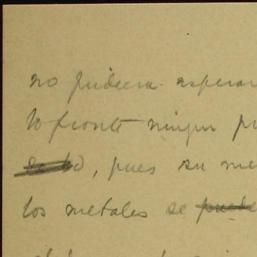 no pudiera esperar
lo pronto ningun
, pues su me
los metales se puede